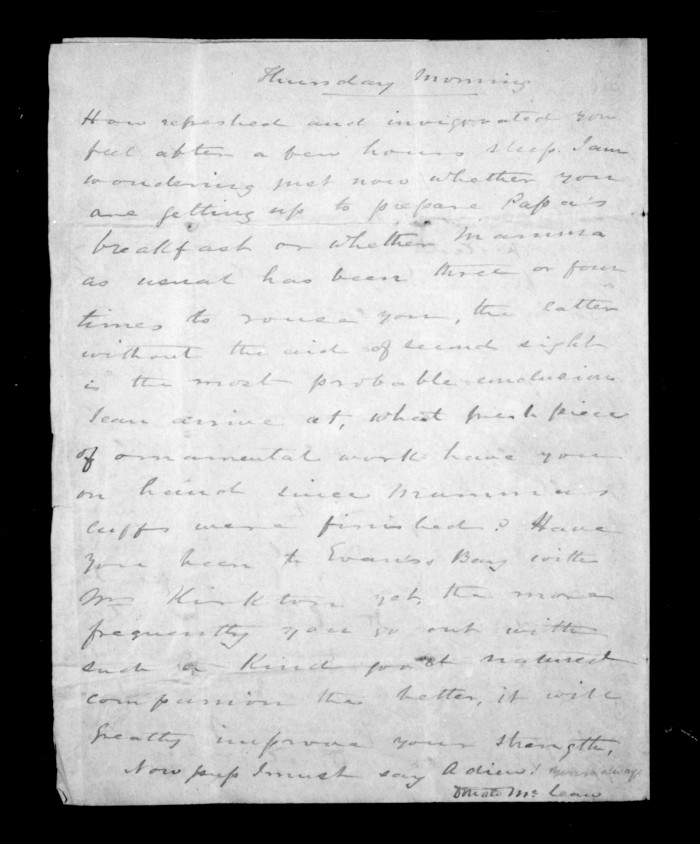 Thursday Morning
How refreshed and invigorated you
feel after a few hours sleep. I am
wondering just now whether you
are getting up to prepare Papa's
breakfast or whether Mamma
as usual has been three or four
times to rouse you, the latter
without the aid of second sight
is the most probable conclusion
I can arrive at, what fresh piece
of ornamental work have you
on hand since Mamma's
cuffs were finished? Have
you been to Evans's Bay with
Mrs Kirkton yet, the more
frequently you go out with
such a kind good natured
companion the better, it will
greatly improve your strength.
Now I must say Adieu! yours always
McLean